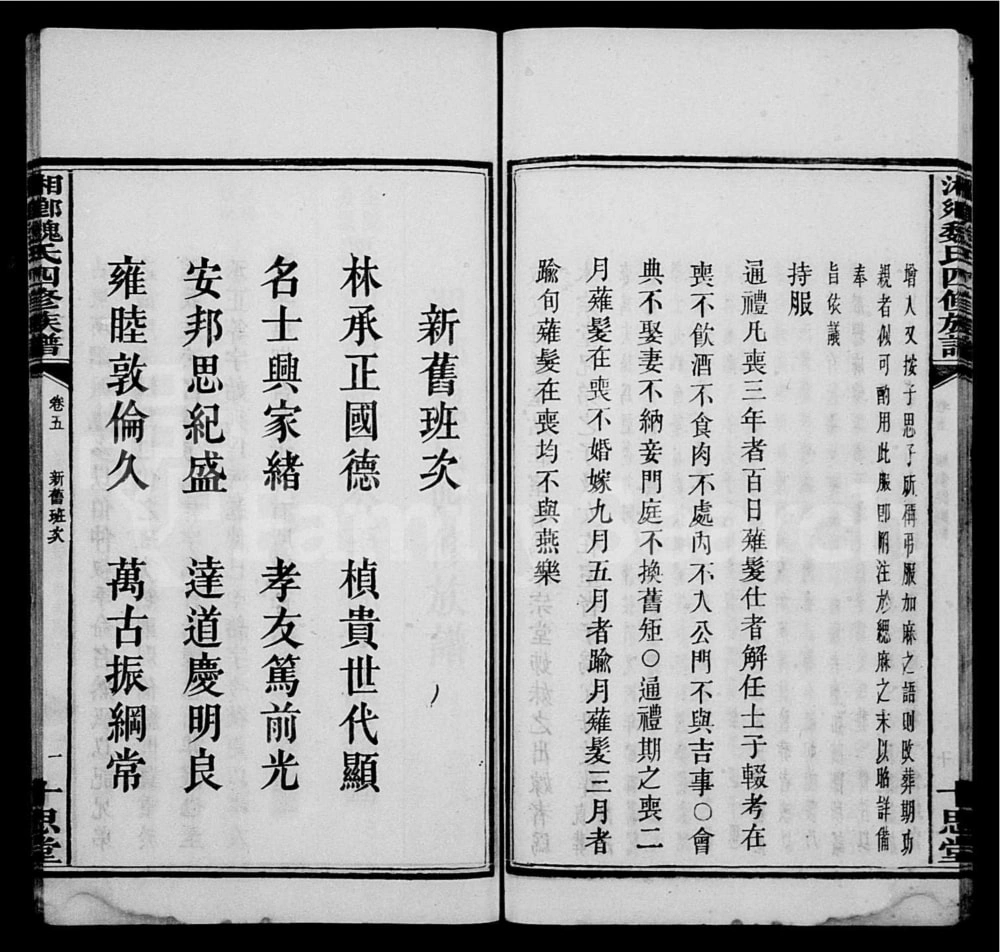 湘鄉魏氏四修族譜
十思堂
增人又按子思子所稱弔服加麻之語則改葬期功
親者似可酌用此服卽附注於緦麻之末以昭詳備
奉
旨依議
持服
通禮凡喪三年者百日薙髮仕者解任士子輟考在
喪不飲酒不食肉不處內不入公門不與吉事○會
典不娶妻不納妾門庭不換舊矩○通禮期之喪二
月薙髮在喪不婚嫁九月五月者踰月薙髮三月者
踰旬薙髮在喪均不與燕樂
新舊班次
林承正國德 楨貴世代顯
名士興家緒 孝友篤前光
安邦思紀盛 達道慶明良
雍睦敦倫久 萬古振綱常
湘鄉魏氏四修族譜
卷五 新舊班次 一
十思堂